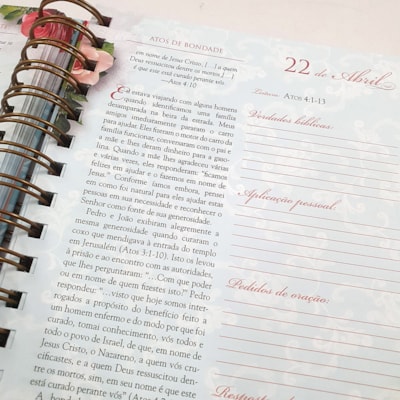 ATOS DE BONDADE
em nome de Jesus Cristo, [...] a quem
Deus ressuscitou dentre os mortos, [...]
é que este está curado perante vós.
—Atos 4:10
Eu estava viajando com alguns homens
quando identificamos uma família
desamparada na beira da estrada. Meus
amigos imediatamente pararam o carro
para ajudar. Eles fizeram o motor do carro da
família funcionar, conversaram com o pai
e a mãe e lhes deram dinheiro para a gaso-
lina. Quando a mãe lhes agradeceu várias
e várias vezes, eles responderam: "ficamos
felizes em ajudar e o fazemos em nome de
Jesus." Conforme íamos embora, pensei
em como foi natural para eles ajudar estas
pessoas em sua necessidade e reconhecer o
Senhor como fonte de sua generosidade.
Pedro e João exibiram alegremente a
mesma generosidade quando curaram o
coxo que mendigava à entrada do templo
em Jerusalém (Atos 3:1-10). Isto os levou
à prisão e ao encontro com as autoridades,
que lhes perguntaram: "...Com que poder
ou em nome de quem fizestes isto?" Pedro
respondeu: "...visto que hoje somos inter-
rogados a propósito do benefício feito a
um homem enfermo e do modo por que foi
curado, tomai conhecimento, vós todos e
todo o povo de Israel, de que, em nome de
Jesus Cristo, o Nazareno, a quem vós cru-
cificastes, e a quem Deus ressuscitou den-
tre os mortos, sim, em seu nome é que este
está curado perante vós" (Atos
A bond
22 de Abril
Leitura: ATOS 4:1-13
Verdades bíblicas:
Aplicação pessoal:
Pedidos de oração: